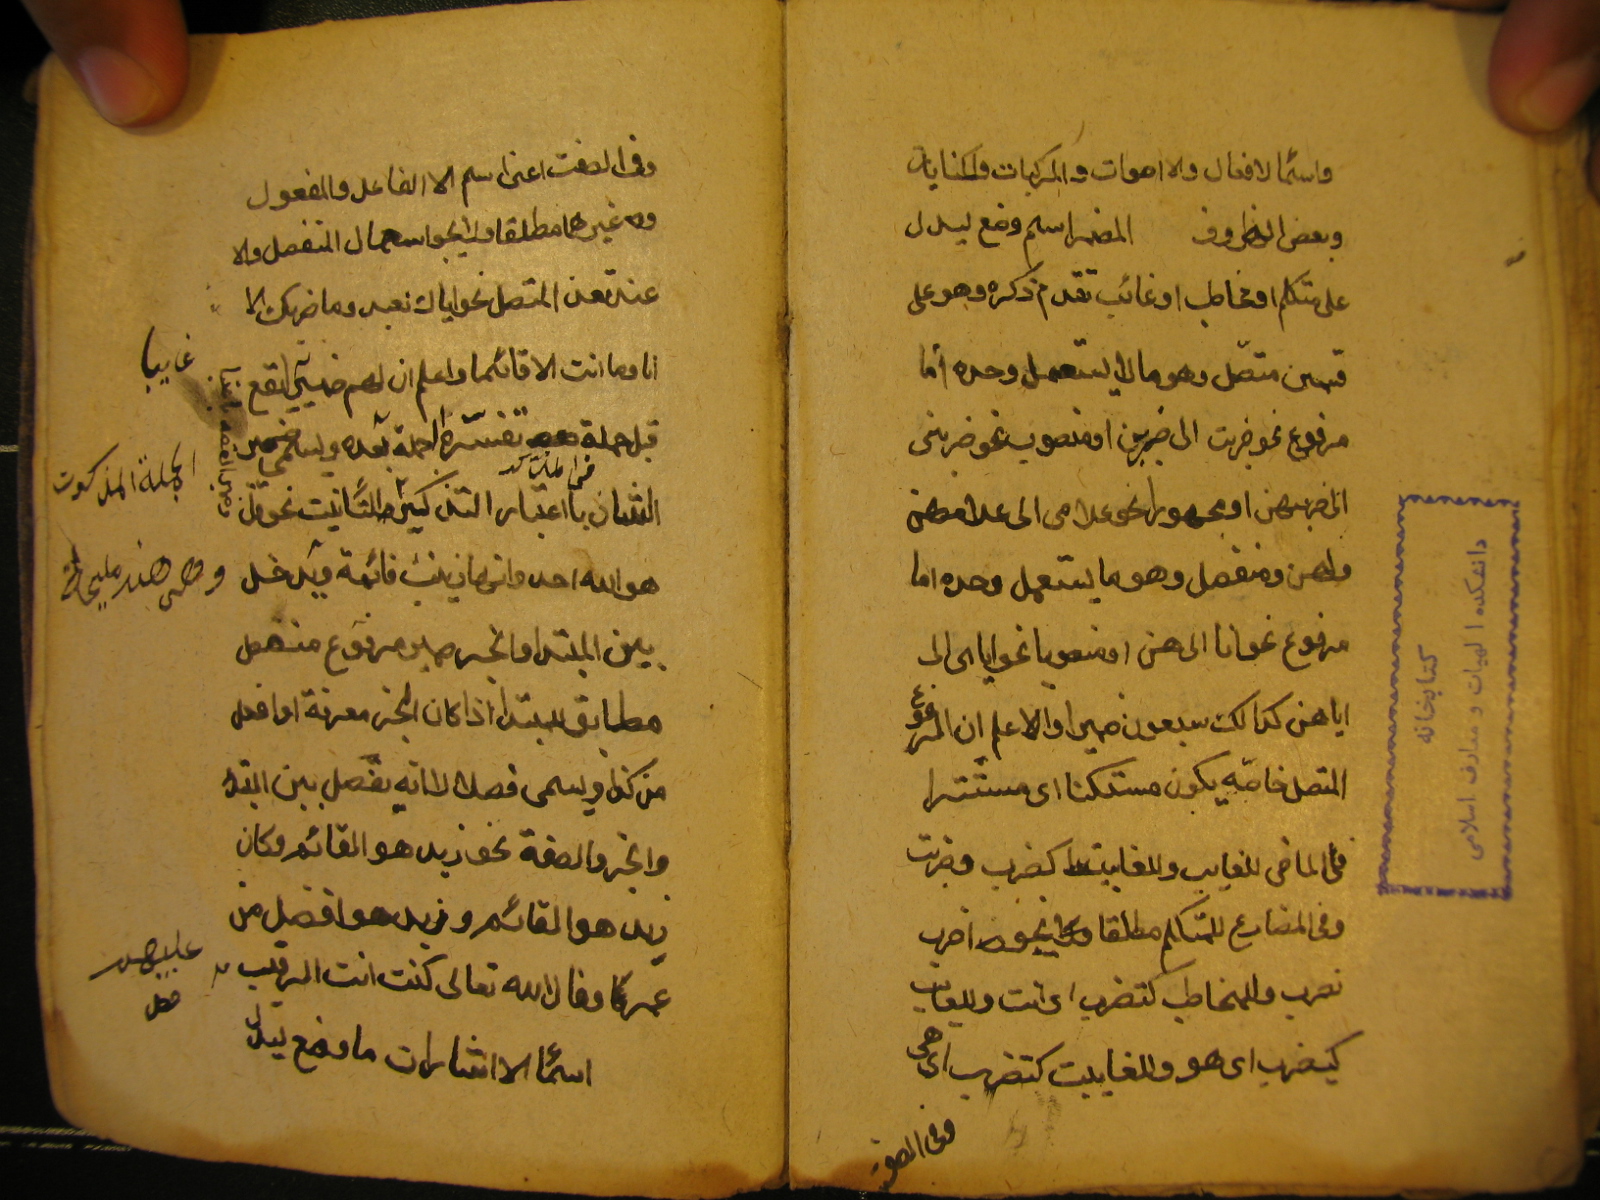 واسما لافعال والاصوات والمركبات والكناية
وبعض الظروف المضمر اسم وضع ليدل
على متكلم او مخاطب او غائب تقدم ذكره وهو على
قسمين متصل وهو ما لا يستعمل وحده اما
مرفوع نحو ضربت الى ضربن او منصوب نحو ضربنى
الى ضربهن او مجرور نحو غلامى الى غلامهن
ولهن ومنفصل وهو ما يستعمل وحده اما
مرفوع نحو انا الى هن او منصوبا نحو اياى الى
اياهن كذالك سبعون ضميرا والا علم ان المرفوع
المتصل خاصه يكون مستكنا اى مستترا
فى الماضى للغايب وللغايبت كضرب وضربت
وفى المضارع للمتكلم مطلقا نحو اضرب
نضرب وللمخاطب كتضرب اى انت وللغايب
كيضرب اى هو وللغايبت كتضرب اى هى
وفى الصفت
دانشکده الهیات و معارف اسلامی
کتابخانه
وفى الصفت اعنى اسم الا الفاعل والمفعول
وغيرهما مطلقا ولا يجو استعمال المنفصل والا
عند تعذر المتصل نحو اياك نعبد وما ضربك الا
انا وما انت الا قائما واعلم ان لهم ضمير يقع
غايبا
قبل جملة تفسره الجملة بعده ويسمى ضمير
الجملة المذكوت
الشان باعتبار التذكير والتانيت نحو قل
هو الله احد وانها زينب قائمة ويدخل
وهى هند مليحة
بين المبتدا والخبر ضمير مرفوع منفصل
مطابق للمبتدا اذا كان الخبر معرفة او افعل
من كذا ويسمى فصلا لانه يفصل بين ابتدا
والخبر والصفة نحو زيد هو القائم وكان
زيد هو القائم وزيد هو افضل من
عمر وقال الله تعالى كنت انت الرقيب
عليهم
اسما الا اشارات ما وضع ليدل